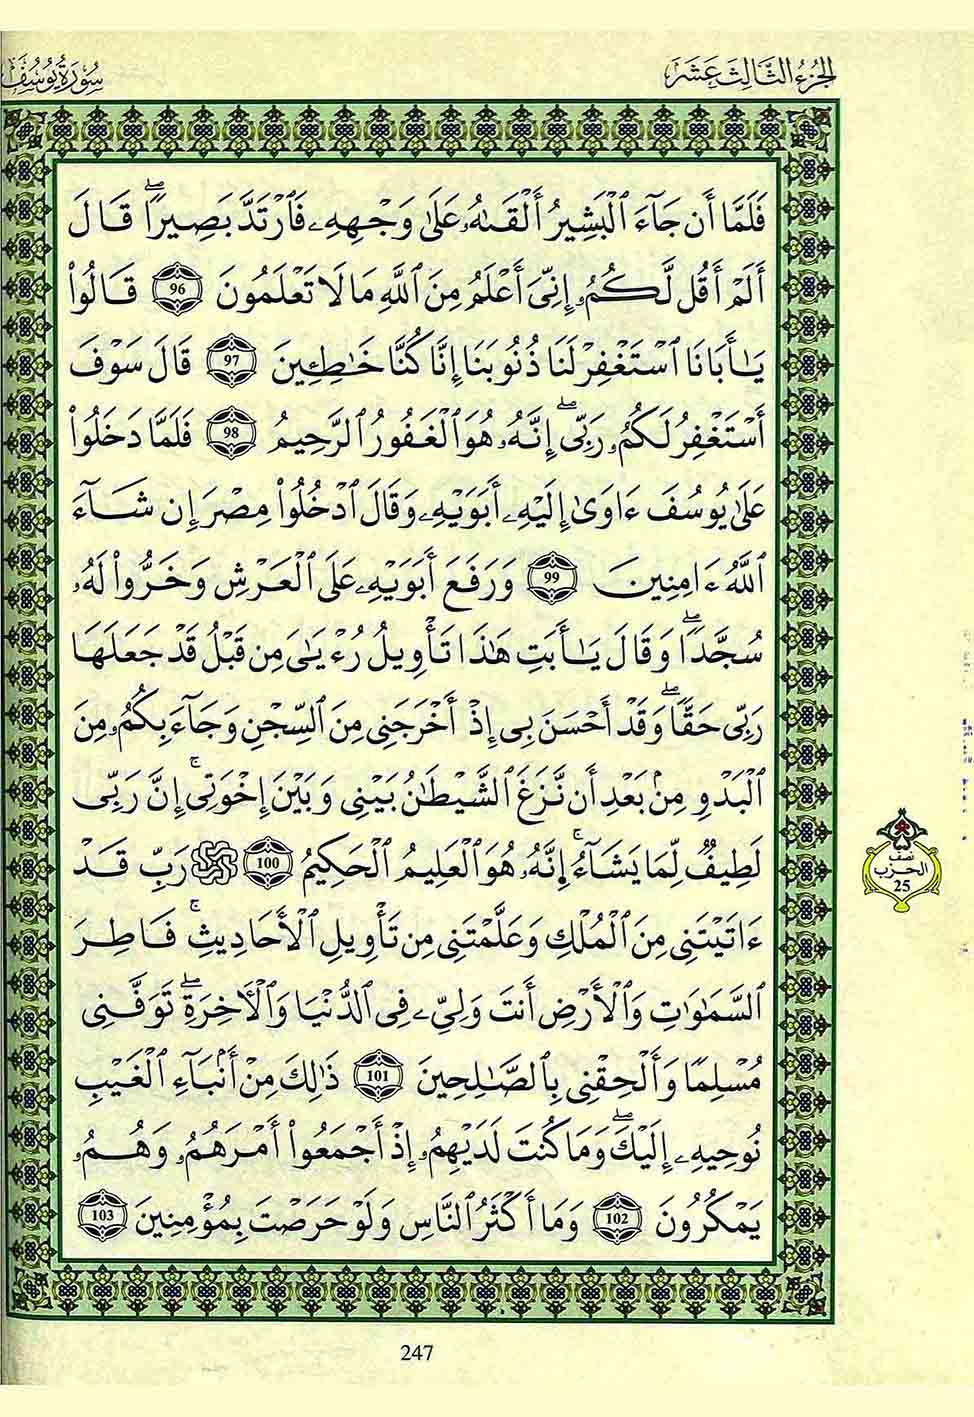 الجزء الثالث عشر
سورة يوسف
فَلَمَّا أَن جَآءَ ٱلْبَشِيرُ أَلْقَىٰهُۥ عَلَىٰ وَجْهِهِۦ فَٱرْتَدَّ بَصِيرًاۖ قَالَ
أَلَمْ أَقُل لَّكُمُۥٓ إِنِّىَ أَعْلَمُ مِنَ ٱللَّهِ مَا لَا تَعْلَمُونَ 96 قَالُوا۟
يَٰٓأَبَانَا ٱسْتَغْفِرْ لَنَا ذُنُوبَنَآ إِنَّا كُنَّا خَٰطِـِٔينَ 97 قَالَ سَوْفَ
أَسْتَغْفِرُ لَكُمُۥ رَبِّىٓۖ إِنَّهُۥ هُوَ ٱلْغَفُورُ ٱلرَّحِيمُ 98 فَلَمَّا دَخَلُوا۟
عَلَىٰ يُوسُفَ ءَاوَىٰٓ إِلَيْهِۦ أَبَوَيْهِۦ وَقَالَ ٱدْخُلُوا۟ مِصْرَ إِن شَآءَ
ٱللَّهُ ءَامِنِينَ 99 وَرَفَعَ أَبَوَيْهِۦ عَلَى ٱلْعَرْشِ وَخَرُّوا۟ لَهُۥ
سُجَّدًاۖ وَقَالَ يَٰٓأَبَتِ هَٰذَا تَأْوِيلُ رُءْيَٰىَ مِن قَبْلُ قَدْ جَعَلَهَا
رَبِّى حَقًّاۖ وَقَدْ أَحْسَنَ بِى إِذْ أَخْرَجَنِى مِنَ ٱلسِّجْنِ وَجَآءَ بِكُمُۥ مِنَ
ٱلْبَدْوِ مِنۢ بَعْدِ أَن نَّزَغَ ٱلشَّيْطَٰنُ بَيْنِى وَبَيْنَ إِخْوَتِىٓۚ إِنَّ رَبِّى
لَطِيفٌ لِّمَا يَشَآءُۚ إِنَّهُۥ هُوَ ٱلْعَلِيمُ ٱلْحَكِيمُ 100 رَبِّ قَدْ
ءَاتَيْتَنِى مِنَ ٱلْمُلْكِ وَعَلَّمْتَنِى مِن تَأْوِيلِ ٱلْأَحَادِيثِۚ فَاطِرَ
ٱلسَّمَٰوَٰتِ وَٱلْأَرْضِ أَنتَ وَلِيِّۦ فِى ٱلدُّنْيَا وَٱلْأَخِرَةِۖ تَوَفَّنِى
مُسْلِمًا وَأَلْحِقْنِى بِٱلصَّٰلِحِينَ 101 ذَٰلِكَ مِنْ أَنۢبَآءِ ٱلْغَيْبِ
نُوحِيهِۦ إِلَيْكَۖ وَمَا كُنتَ لَدَيْهِمُۥٓ إِذْ أَجْمَعُوٓا۟ أَمْرَهُمُۥ وَهُمُۥ
يَمْكُرُونَ 102 وَمَآ أَكْثَرُ ٱلنَّاسِ وَلَوْ حَرَصْتَ بِمُؤْمِنِينَ 103
نصف
الحزب
25
247